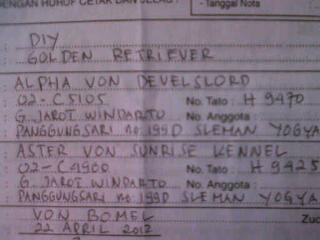 DENGAN HURUF CETAK DAN JELAS :
- Tanggal Nota
: DIY
: GOLDEN RETRIEVER
: ALPHA VON DEVELSLORD
: 02-C5105 No. Tato : H 9470
: G. JAROT WINDARTO No. Anggota :
: PANGGUNGSARI no. 199D SLEMAN YOGYA
: ASTER VON SUNRISE KENNEL
: 02-C4900 No. Tato : H 9425
: G. JAROT WINDARTO No. Anggota :
: PANGGUNGSARI no 199D SLEMAN YOGYA
: VON BOMEL
: 22 APRIL 2012